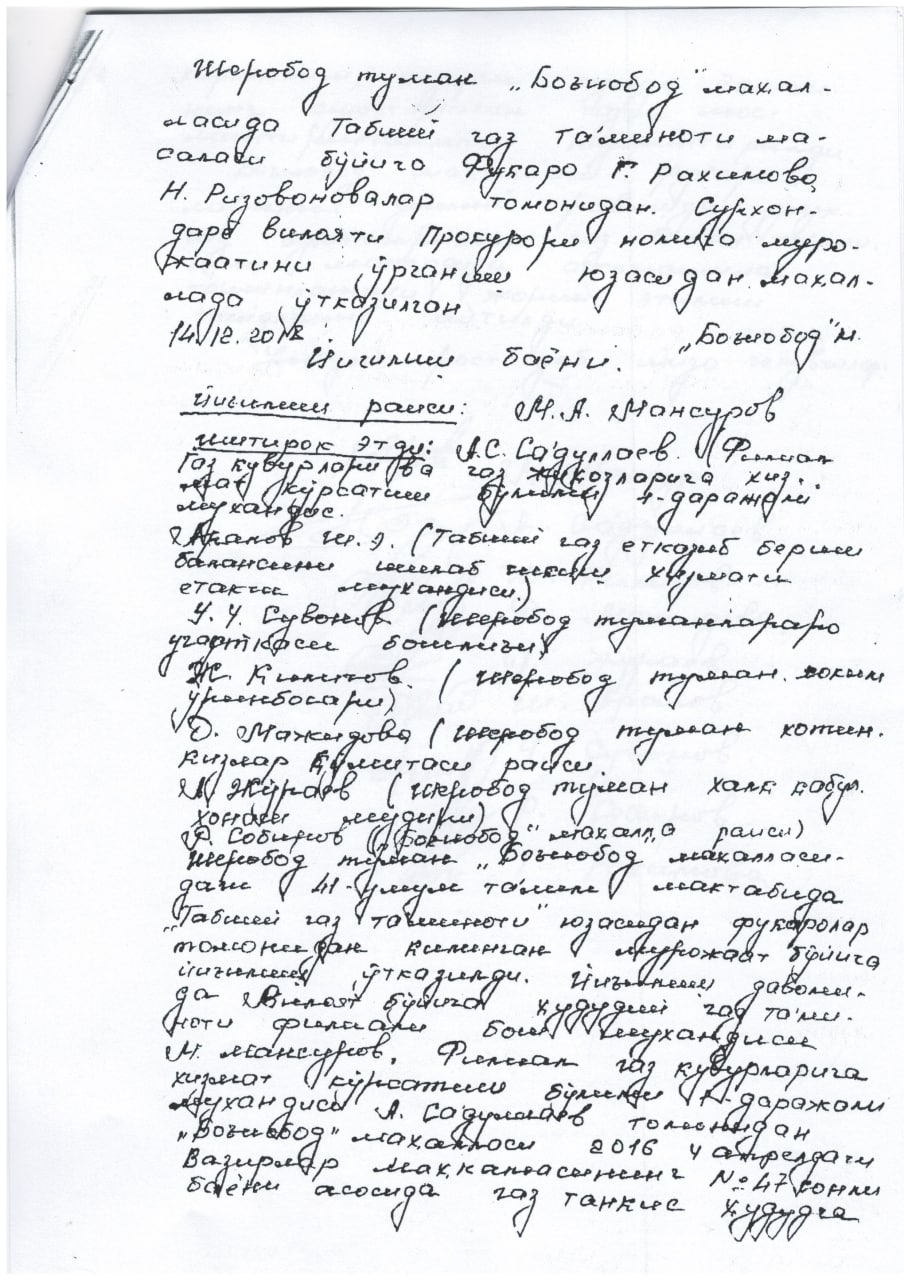 Шеробод туман „Боғиобод" махал-
ласида Табиий газ та'миноти ма-
саласи бўйича Фукаро Г. Рахимова,
Н. Ризовоновалар томонидан. Сурхон-
дарё вилояти Прокурори номига муро-
жаатини ўрганиш юзасидан махал-
лада ўтказилган
14.12.2018 „Боғиобод" м.
Йиғилиш баёни.
Йиғилиш раиси: М.А. Мансуров
иштирок этди: А.С. Са'дуллаев. (Филиал
Газ кувурлари ва газ жихозларига хиз-
мат кўрсатиш бўлими 1-даражали
мухандис.
Ш.Э. (Табиий газ етказиб бериш
балансини ишлаб чикиш хизмати
етакчи мухандиси)
У.Ч. Сувонов (Шеробод туманлараро
участкаси бошлиғи)
Ж. (Шеробод туман. хоким
ўринбосари)
Д. Мажидова (Шеробод туман хотин.
кизлар кўмитаси раиси.
А. Жўраев (Шеробод туман халк кабул.
хонаси мудири)
Р. Собиров („Боғиобод" махалла раиси)
Шеробод туман „Боғиобод махалласи-
даги 41-умум та'лим мактабида
„Табиий газ та'миноти" юзасидан фукаролар
томонидан килинган мурожаат бўйича
йиғилиш ўтказилди. Йиғилиш давоми-
да Вилоят бўйича худудий газ та'ми-
ноти филиали бош мухандиси
М. Мансуров, Филиал газ кувурларига
хизмат кўрсатиш бўлими 1-даражали
мухандиси А. Са'дуллаев томонидан
„Боғиобод" махалласи 2016 4 апрелдаги
Вазирлар Махкамасининг №47 сонли
баёни асосида газ танкис худудга